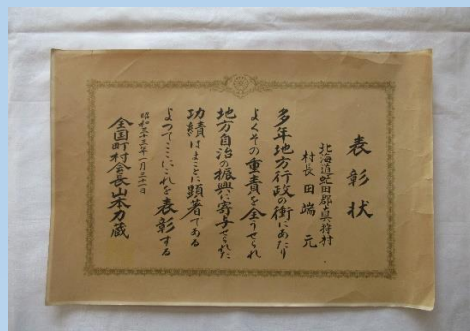 表彰状
北海道虻田郡真狩村
村長 田端 元
多年地方行政の衝にあたり
よくその重責を全うせられ
地方自治の振興に寄与せられた
功績はまことに顕著である
よつてここにこれを表彰する
昭和三十三年一月三十一日
全国町村会長山本力蔵